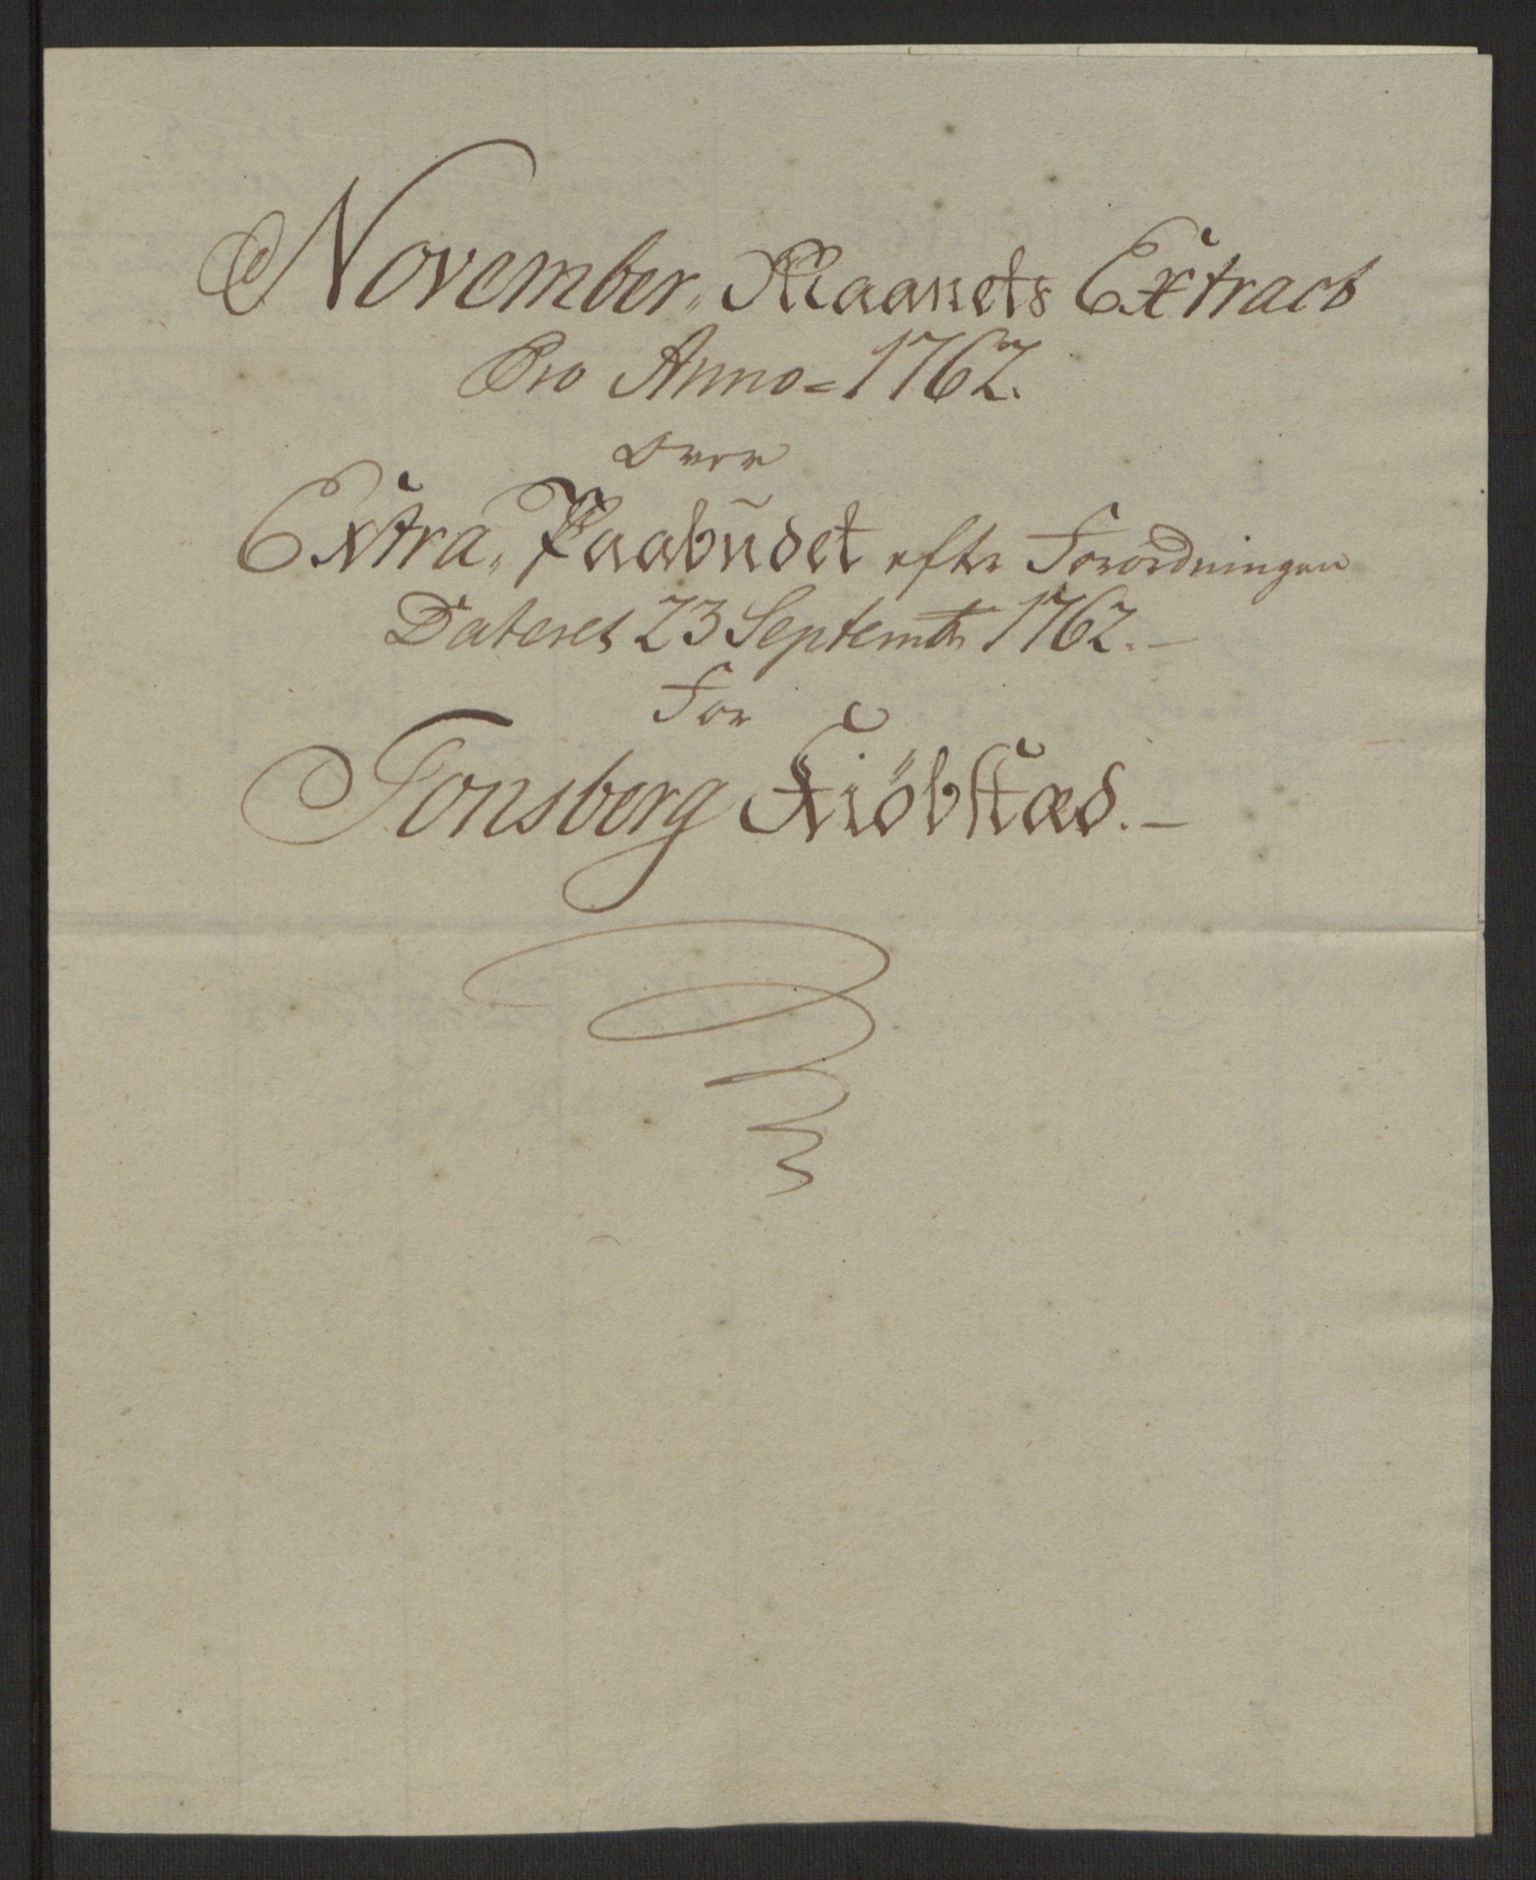 November, Maanets Extract
Pro Anno = 1762.
over
Extra, Paabudet efter Forordningen
Dateret 23 Septembr 1762. —
For
Tonsberg Kiöbstæd. —